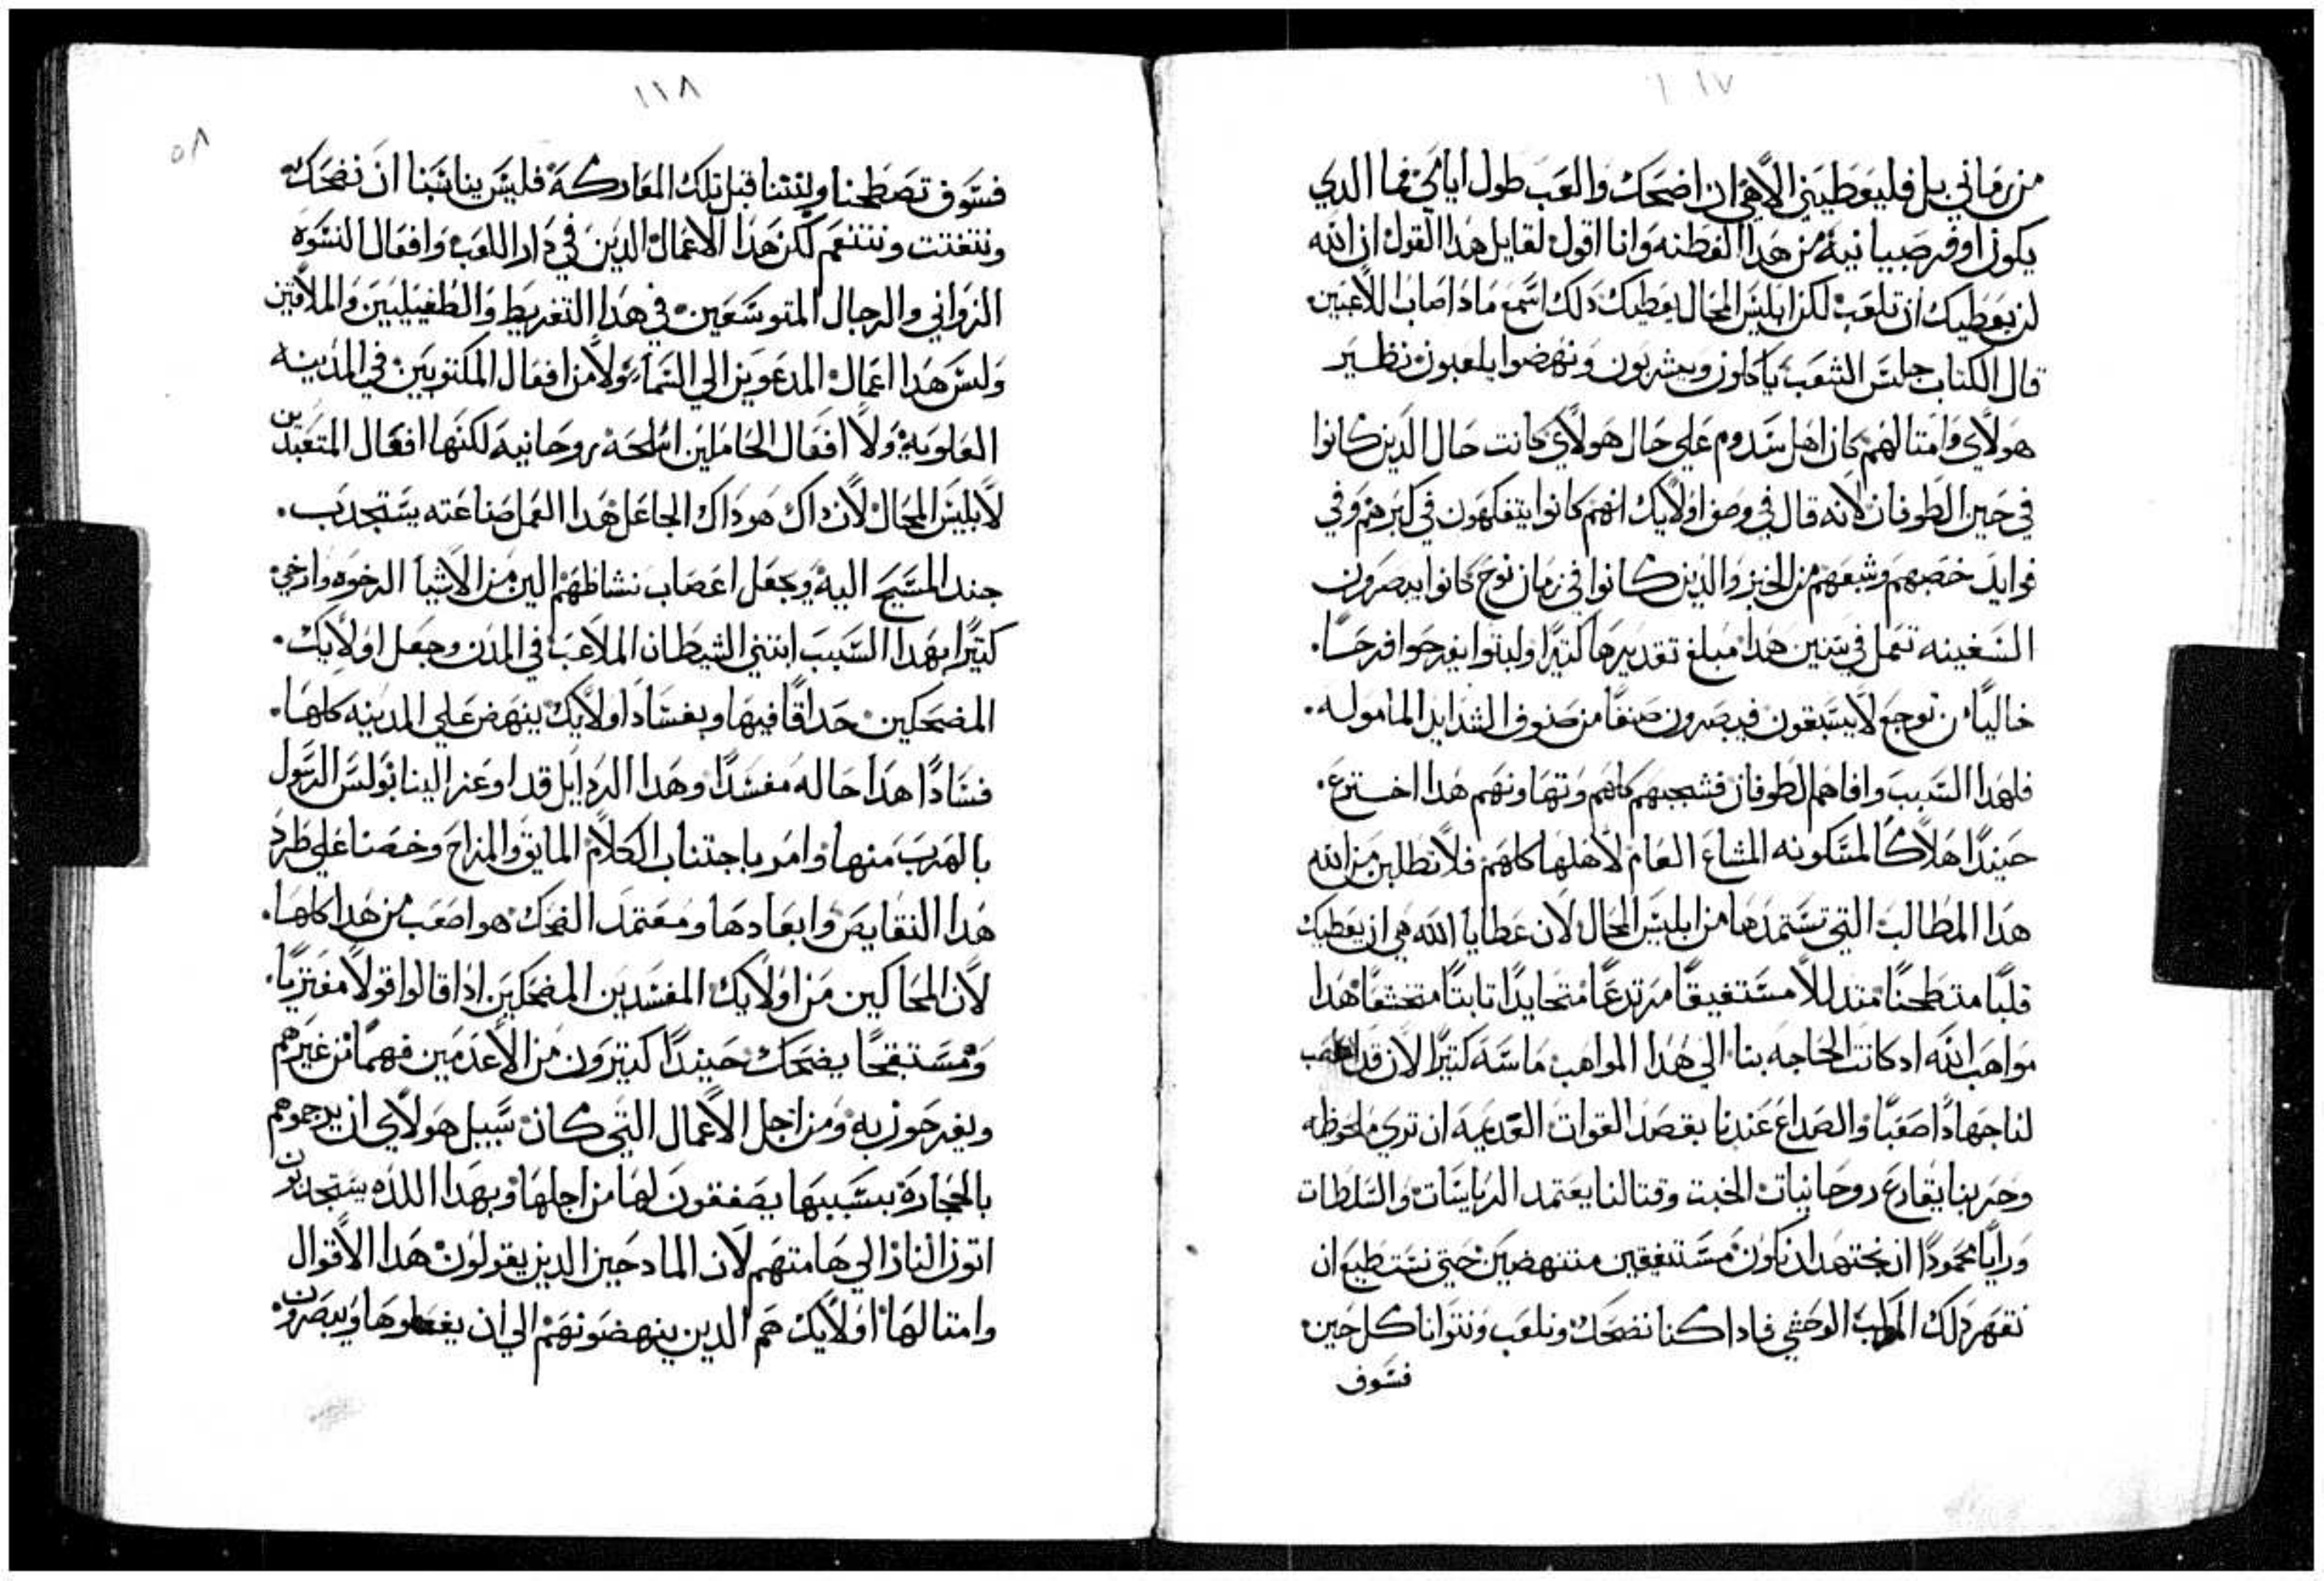 ١١٧
من زماني بل فليعطيني الاهي ان اضحك والعب طول ايامي فما الدي
يكون اوفر صبيانية من هدا الفطنه وانا اقول لقايل هدا القول ان الله
لن يعطيك ان تلعب لكن ابليس المحال يعطيك دلك اسمع مادا اصاب اللاعبين
قال الكتاب جلس الشعب ياكلون ويشربون ونهضوا يلعبون نظير
هولاي وامتالهم كان اهل سدوم علي حال هولاي كانت حال الدين كانوا
في حين الطوفان لانه قال في وصف اولايك انهم كانوا يتفكهون في كبرهم وفي
فوايد خصبهم وشبعهم من الخبز والدين كانوا في زمان نوح كانوا يبصرون
السفينه تعمل في سنين هدا مبلغ تقديرها كتيرا ولبتوا يفرحوا فرحا
خاليا من توجع لا يسبقون فيبصرون صنفا من صنوف الشدايد الماموله
فلهدا السبب وافاهم الطوفان فشجبهم كلهم وتهاونهم هدا اخترع
حيندا هلاكا لمسكونه المشاع العام لاهلها كلهم فلا تطلبن من الله
هدا المطالب التي تستمدها من ابليس المحال لان عطايا الله هي ان يعطيك
قلبا متطحنا متدللا مستفيقا مرتدعا متحايدا تابتا متخشعا هدا
مواهب الله اد كانت الحاجه بنا الي هدا المواهب ماسة كتيرا لان قد
لنا جهادا صعبا والصداع عندنا بقصد القوات العديمه ان تري ملحوظه
وحربنا يقارع روحانيات الخبت وقتالنا يعتمد الرياسات والسلطات
ورايا محمودا ان نجتهد ان نكون مستفيقين منتهضين حتي نستطيع ان
نقهر دلك الوحشي فادا كنا نضحك ونلعب ونتوانا كل حين
فسوف
١١٨
٥٨
فسوف تصطحنا ولتتنا قبل تلك المعاركة فليس يناسبنا ان نضحك
ونتفتت ونتنعم لكن هدا الاعمال الدين في دار اللعب وافعال النسوه
الزواني والرجال المتوسعين في هدا التفريط والطفيليين والملاقين
وليس هدا اعمال المدعوين الي السماء ولا من افعال المكتوبين في المدينه
العلويه ولا افعال الحاملين اسلحة روحانية لكنها افعال المتعبدين
لابليس المحال لان داك هو داك الجاعل هدا العمل صناعته يستجدب
جند المسيح اليه ويجعل اعصاب نشاطهم الين من الاشيا الرخوه وارخي
كتيرا بهدا السبب ابتني الشيطان الملاعب في المدن وجعل اولايك
المضحكين حداقا فيها وبفساد اولايك ينهض علي المدينه كلها
فسادا هدا حاله مفسدا وهدا الردايل قد اوعز الينا بولس الرسول
بالهرب منها وامر باجتناب الكلام المايق والمزاح وخصنا علي طرد
هدا النقايص وابعادها ومعتمد الضحك هو اصعب من هدا كلها
لان المحاكين من اولايك المفسدين المضحكين ادا قالوا قولا مفتريا
ومستقبحا يضحك حيندا كتيرون من الاعدمين فهما من غيرهم
ويفرحون به ومن اجل الاعمال التي كان سبيل هولاي ان يرجموهم
بالحجارة بسببها يصفقون لها من اجلها وبهدا اللده يستجدبون
اتون الناز الي هامتهم لان المادحين الدين يقولون هدا الاقوال
وامتالها اولايك هم الدين ينهضونهم الي ان يفعلوها ويبصرون